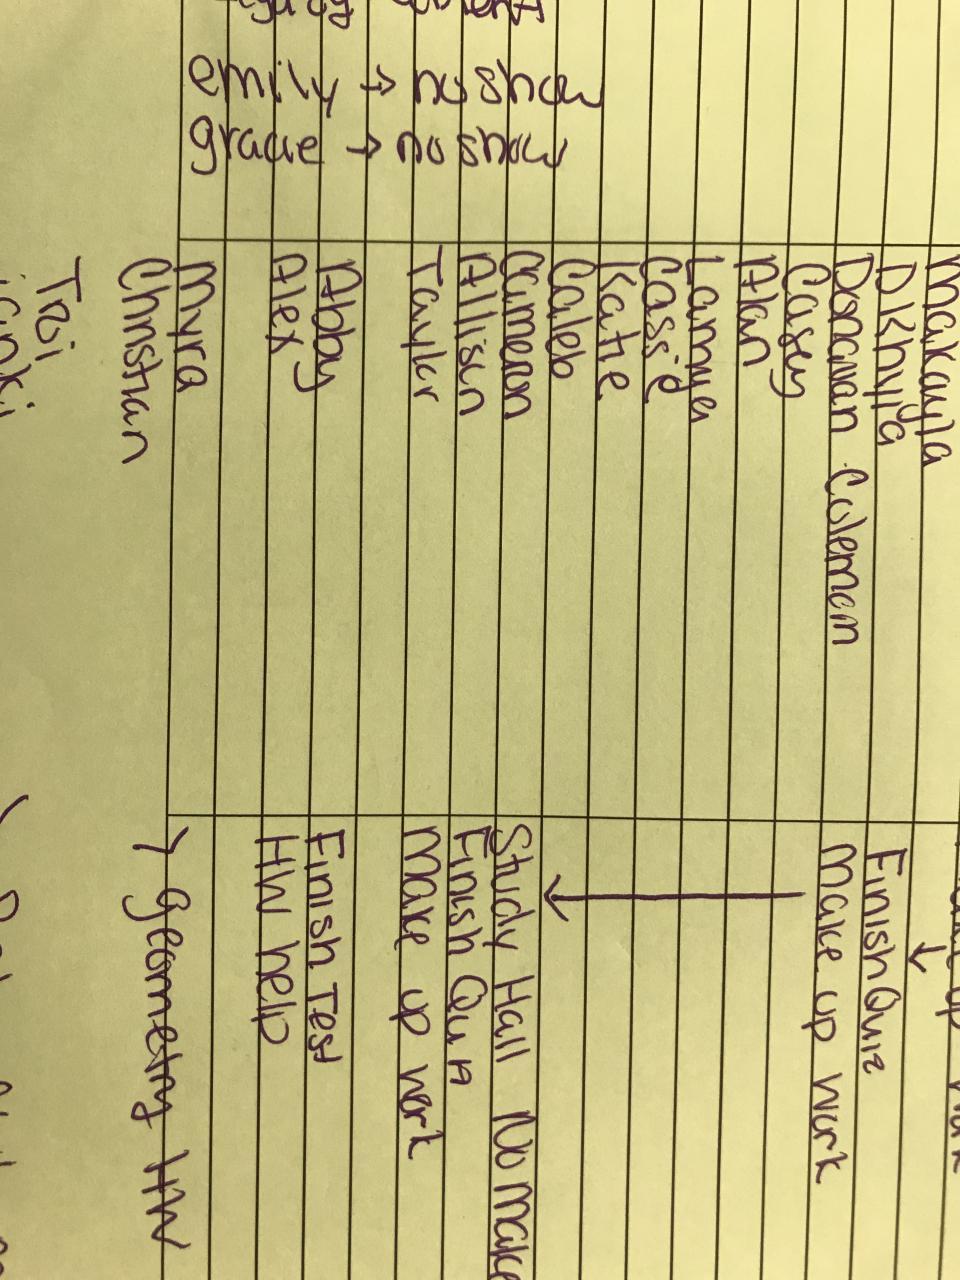 emily → no show
gracie → no show
Makayla up work
Dkhyia Finish Quiz
Donovan Coleman make up work
Casey
Alan
Lamya
Cassie
Katie
Caleb
Cameron Study Hall No Make
Allison Finish Quiz
Taylor Make up work
Abby Finish Test
Alex HW help
Myra
Christian > geometry HW